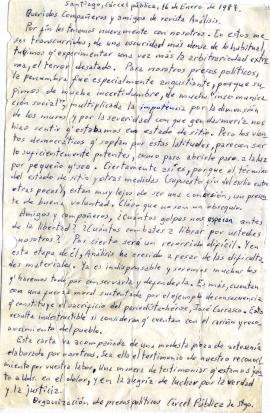 Santiago, Cárcel pública, 16 de Enero de 1987.
Queridos Compañeros y amigos de revista Análisis.
Por fin les tenemos nuevamente con nosotros. En estos me-
ses transcurridos, de una oscuridad más densa de lo habitual,
tuvimos q' experimentar una vez más la arbitrariedad extre-
ma, el terror desatado. Para nosotros presos políticos,
la penumbra fue especialmente angustiante, porque su-
pimos de mucha incertidumbre, de mucha "incomunica-
ción social", multiplicada la impotencia por la dimensión
de los muros, y por la severidad con que gendarmería nos
hizo sentir q' estábamos con estado de sitio. Pero los vien-
tos democráticos q' soplan por estas latitudes, parecen ser
lo suficientemente potentes, como para abrirle paso a la luz
por pequeño q' sea. Ciertamente así es, porque el término
del estado de sitio y otras medidas (supuesto fin del exilio entre
otras pocas), están muy lejos de ser una concesión, una prueba
de buena voluntad. Claro que no son un obsequio.
Amigos y compañeros, ¿Cuántos golpes nos esperan antes
de la libertad? ¿Cuántos combates a librar por ustedes
y nosotros? Por cierto será un recorrido difícil. Y en
esta etapa de él, Análisis ha crecido a pesar de las dificulta-
des materiales. Ya es indispensable y seremos muchos los
q' haremos todo por conservarla y defenderla. Es más, cuentan
con una fuerza moral sustentada por el ejemplo de consecuencia
q' constituye el sacrificio del periodista héroe, José Carrasco. Esto
resulta indestructible si consideran q' cuentan con el cariño y reco-
nocimiento del pueblo.
Esta carta va acompañada de una modesta pieza de artesanía
elaborada por nosotros. Sea ella el testimonio de nuestro reconoci-
miento por vuestra labor. Una manera de testimoniar q' estamos jun-
to a Uds. en el dolor, y en la alegría de luchar por la verdad
y la justicia.
Organización de presos políticos Cárcel Pública de Stgo.